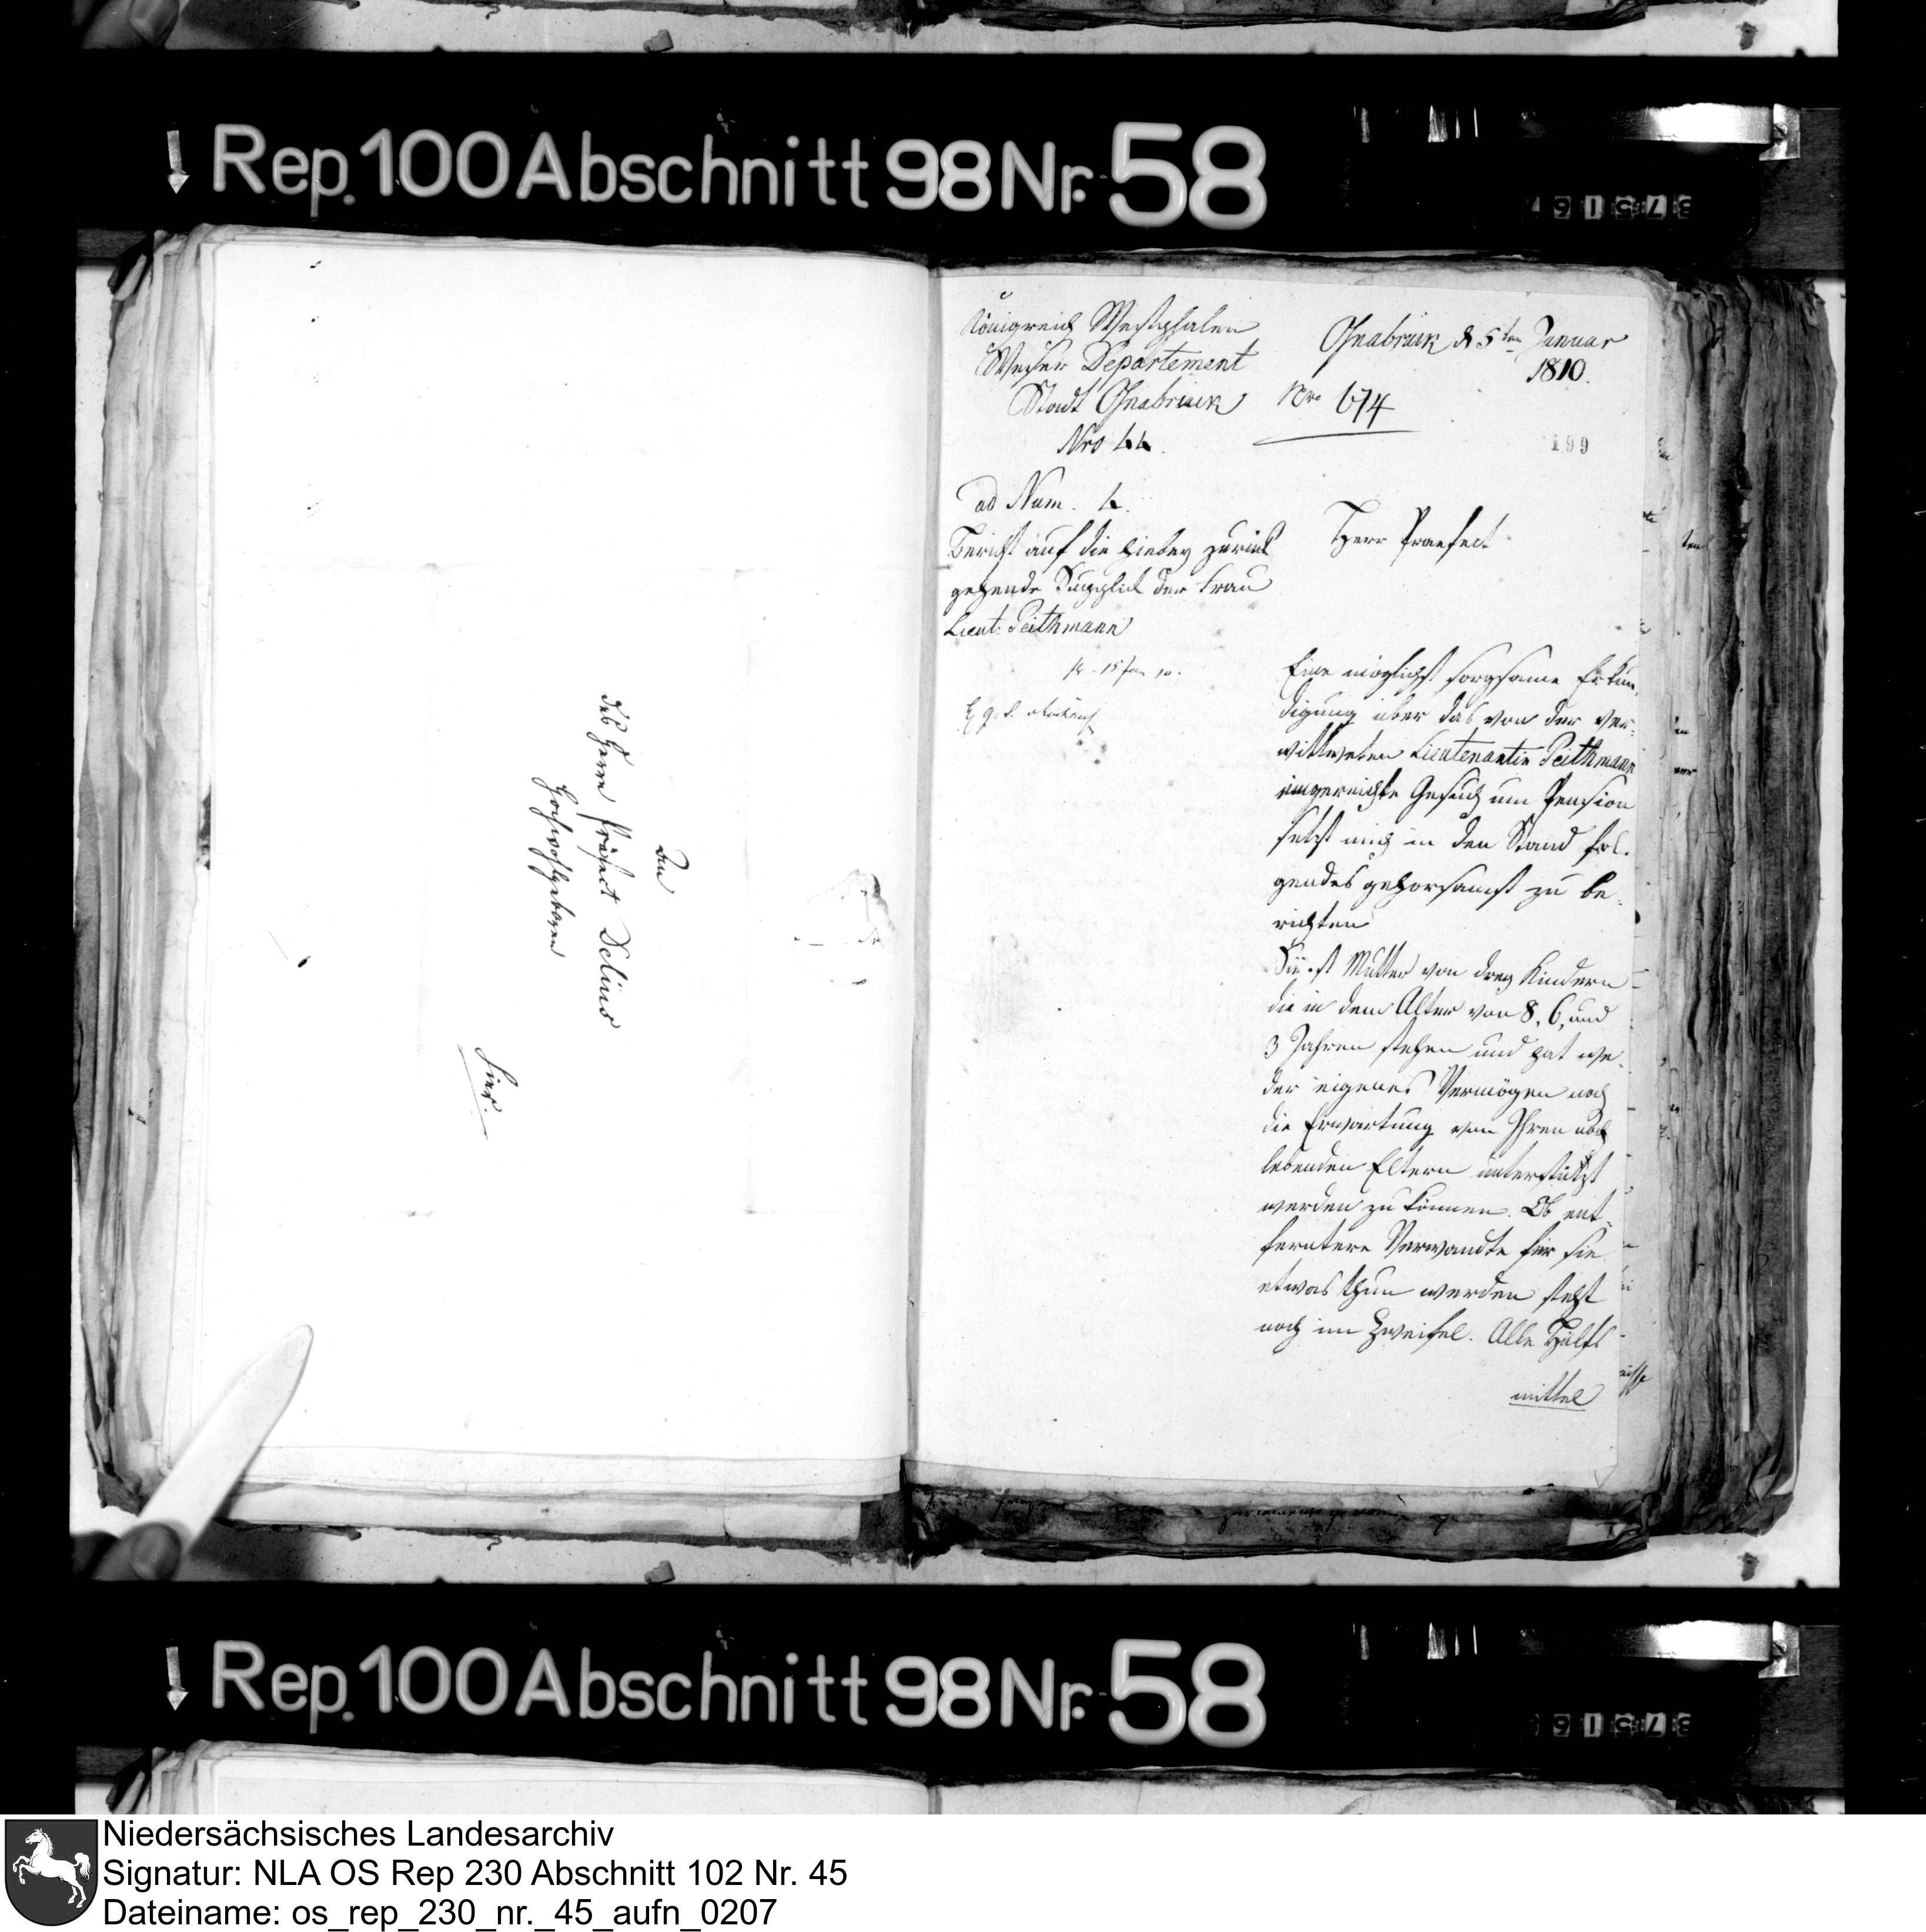 Rep. 100 Abschnitt 98 Nr. 58
An
des Herrn Präfect Delius
Hochwohlgeboren
Hier.
Königreich Westphalen
Weser Departement
Stadt Osnabrück
Nro 44.
Osnabrück d 5ten Januar
1810.
Nro 674
199
ad Num. 4.
Bericht auf die hiebey zurück
gehende Supplik der Frau
Lieut: Peithmann
Herr Praefect
15 Jan 10.
Eine möglichst sorgsame Erkun-
digung über das von der ver-
wittweten Lieutenantin Peithmann
eingereichte Gesuch um Pension
setzt mich in den Stand fol-
gendes gehorsamst zu be-
richten
Sie ist Mutter von drey Kindern
die in dem Alter von 8, 6, und
3 Jahren stehen und hat we-
der eigenes Vermögen noch
die Erwartung von Ihren noch
lebenden Eltern unterstützt
werden zu können. Ob ent-
ferntere Verwandte für sie
etwas thun werden steht
noch im Zweifel. Alle Hülfs
mittel
Rep. 100 Abschnitt 98 Nr. 58
Niedersächsisches Landesarchiv
Signatur: NLA OS Rep 230 Abschnitt 102 Nr. 45
Dateiname: os_rep_230_nr._45_aufn_0207